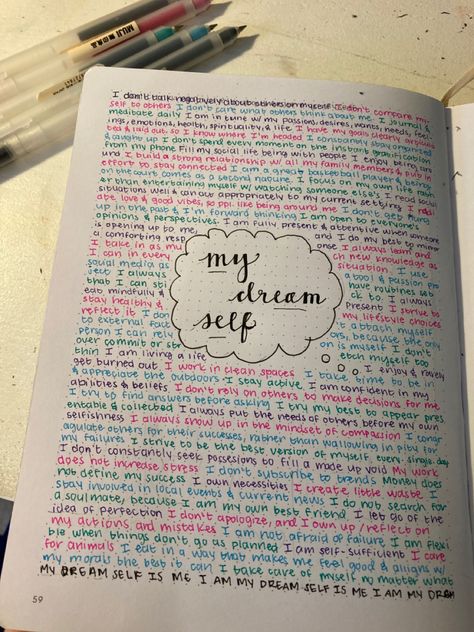 MUJI
I don't talk negatively about others or myself I don't compare my-
self to others I don't care what others think about me I journal &
meditate daily I am in tune w/ my passions, desires, wants, needs, feel-
ings, emotions, health, spirituality, & life I have my goals clearly
& laid out so I know where I'm headed I constantly stay organized
& caught up I don't spend every moment on the instant gratification
from my phone I fill my social life being with people I enjoy being around
I build a strong relationship w/ all my family members & put in
effort to stay connected I am a great basketball player & being
on the court comes as a second nature I focus on my own life rath-
er than entertaining myself w/ watching someone else's I read social
situations well & can act appropriately to my current settings I radi
ate love & good vibes, so ppl like being around me I don't get hung
up in the past & I'm forward thinking I am open to everyone's
opinions & perspectives I am fully present & attentive when someone
is opening up to me, and I do my best to muster
a comforting resp onse I always learn and
I take in as mu ch new knowledge as
I can in every situation I use
social media as tool & passion pro
ject I always have routines set
that I can sti ck to I always
eat mindfully & present I strive to
stay healthy & my lifestyle choices
reflect it I don't attach myself
to external fact ors, because the only
person I can rely on is myself I don't
over commit or str etch myself too
thin I am living a life I enjoy & rarely
get burned out I work in clean spaces I take time to be in
& appreciate the outdoors I stay active I am confident in my
abilities & beliefs I don't rely on others to make decisions for me
I try to find answers before asking I try my best to appear pres
entable & collected I always put the needs of others before my own
selfishness I always show up in the mindset of compassion I congr
agulate others for their successes, rather than wallowing in pity for
my failures I strive to be the best version of myself every single day
I don't constantly seek possesions to fill a made up void My work
does not increase stress I don't subscribe to trends Money does
not define my success I own necessities I create little waste I
stay involved in local events & current news I do not search for
a soulmate, because I am my own best friend I let go of the
idea of perfection I don't apologize, and I own up / reflect on
my actions and mistakes I am not afraid of failure I am flexi
ble when things don't go as planned I am self-sufficient I care
for animals I eat in a way that makes me feel good & aligns w/
my morals the best it can I take care of myself no matter what
MY DREAM SELF IS ME I AM MY DREAM SELF IS ME I AM MY DREAM
my
dream
self
59